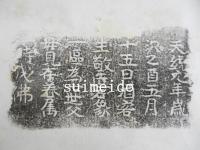 天統元年歳
次乙酉五月
十五日
主敬造石像
一區為亡父
母見在眷属
成佛
suimeido